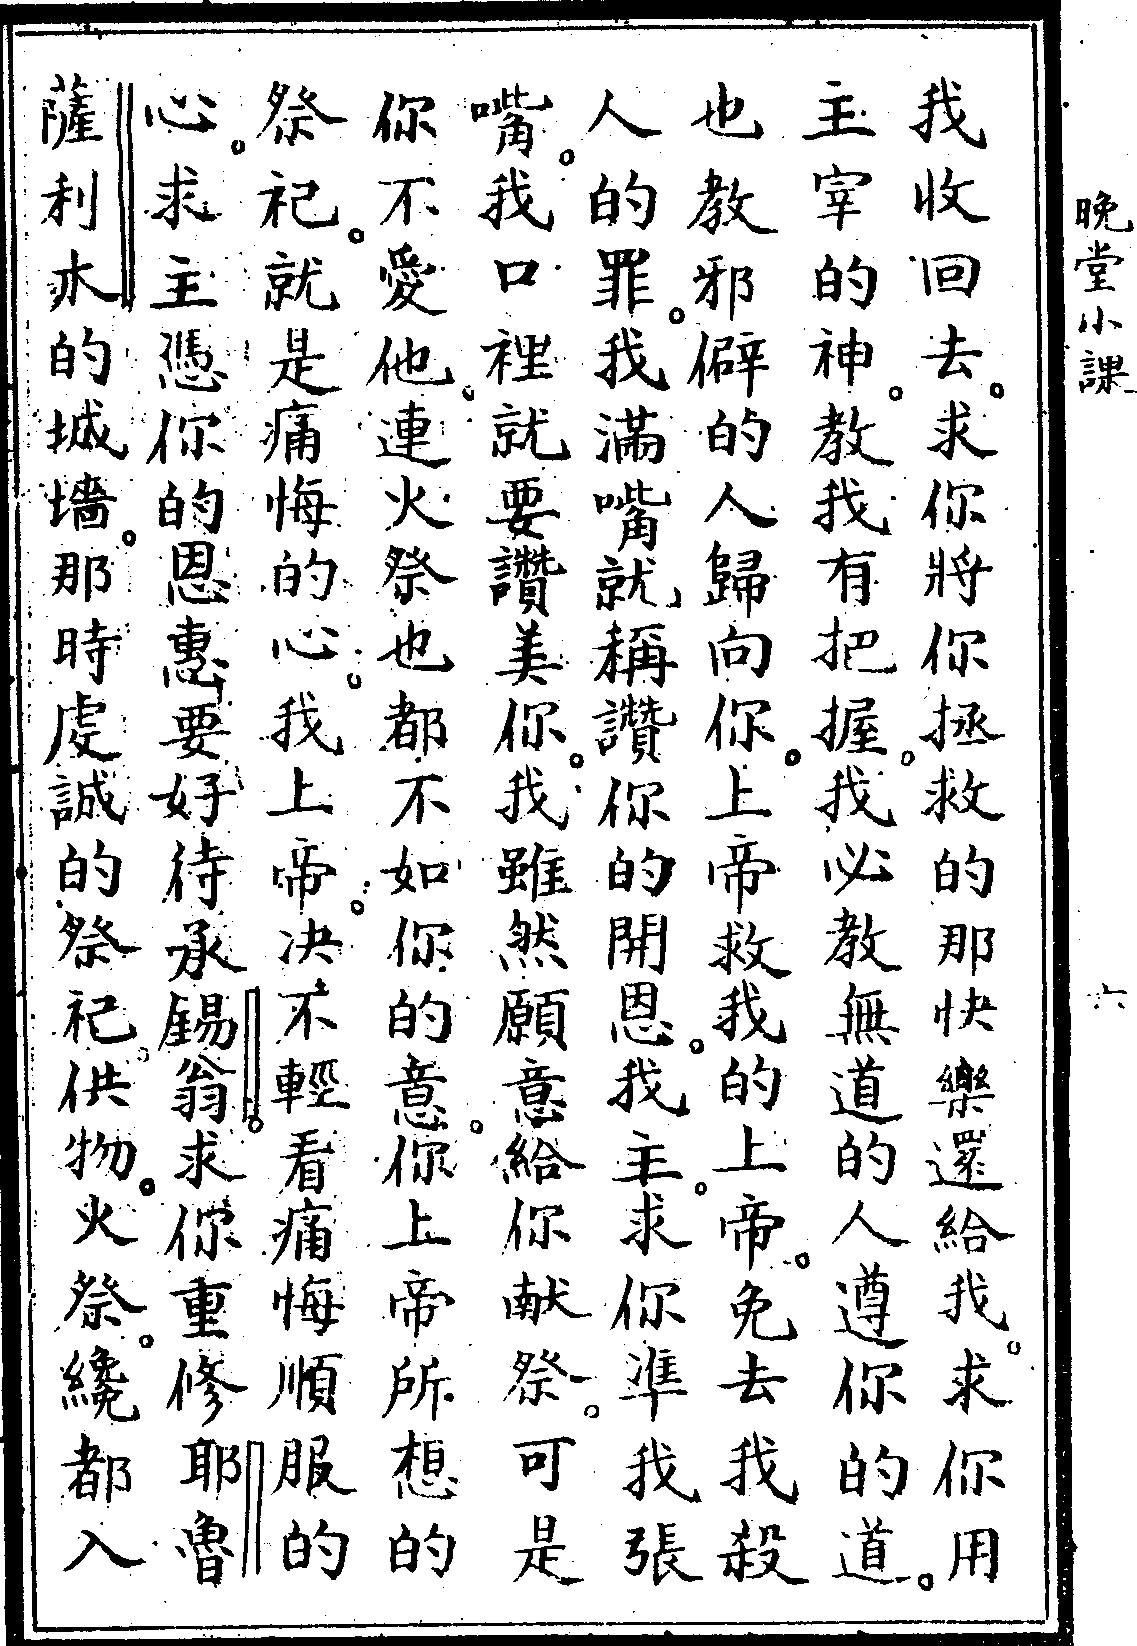 晚堂小課 六
我收回去。求你將你拯救的那快樂還給我。求你用
主宰的神。教我有把握。我必教無道的人遵你的道。
也教邪僻的人歸向你。上帝救我的上帝。免去我殺
人的罪。我滿嘴就稱讚你的開恩。我主。求你準我張
嘴。我口裡就要讚美你。我雖然願意給你献祭。可是
你不愛他。連火祭也都不如你的意。你上帝所想的
祭祀。就是痛悔的心。我上帝。决不輕看痛悔順服的
心。求主憑你的恩惠要好待承錫翁。求你重修耶魯
薩利木的城墻。那時虔誠的祭祀。供物。火祭。纔都入